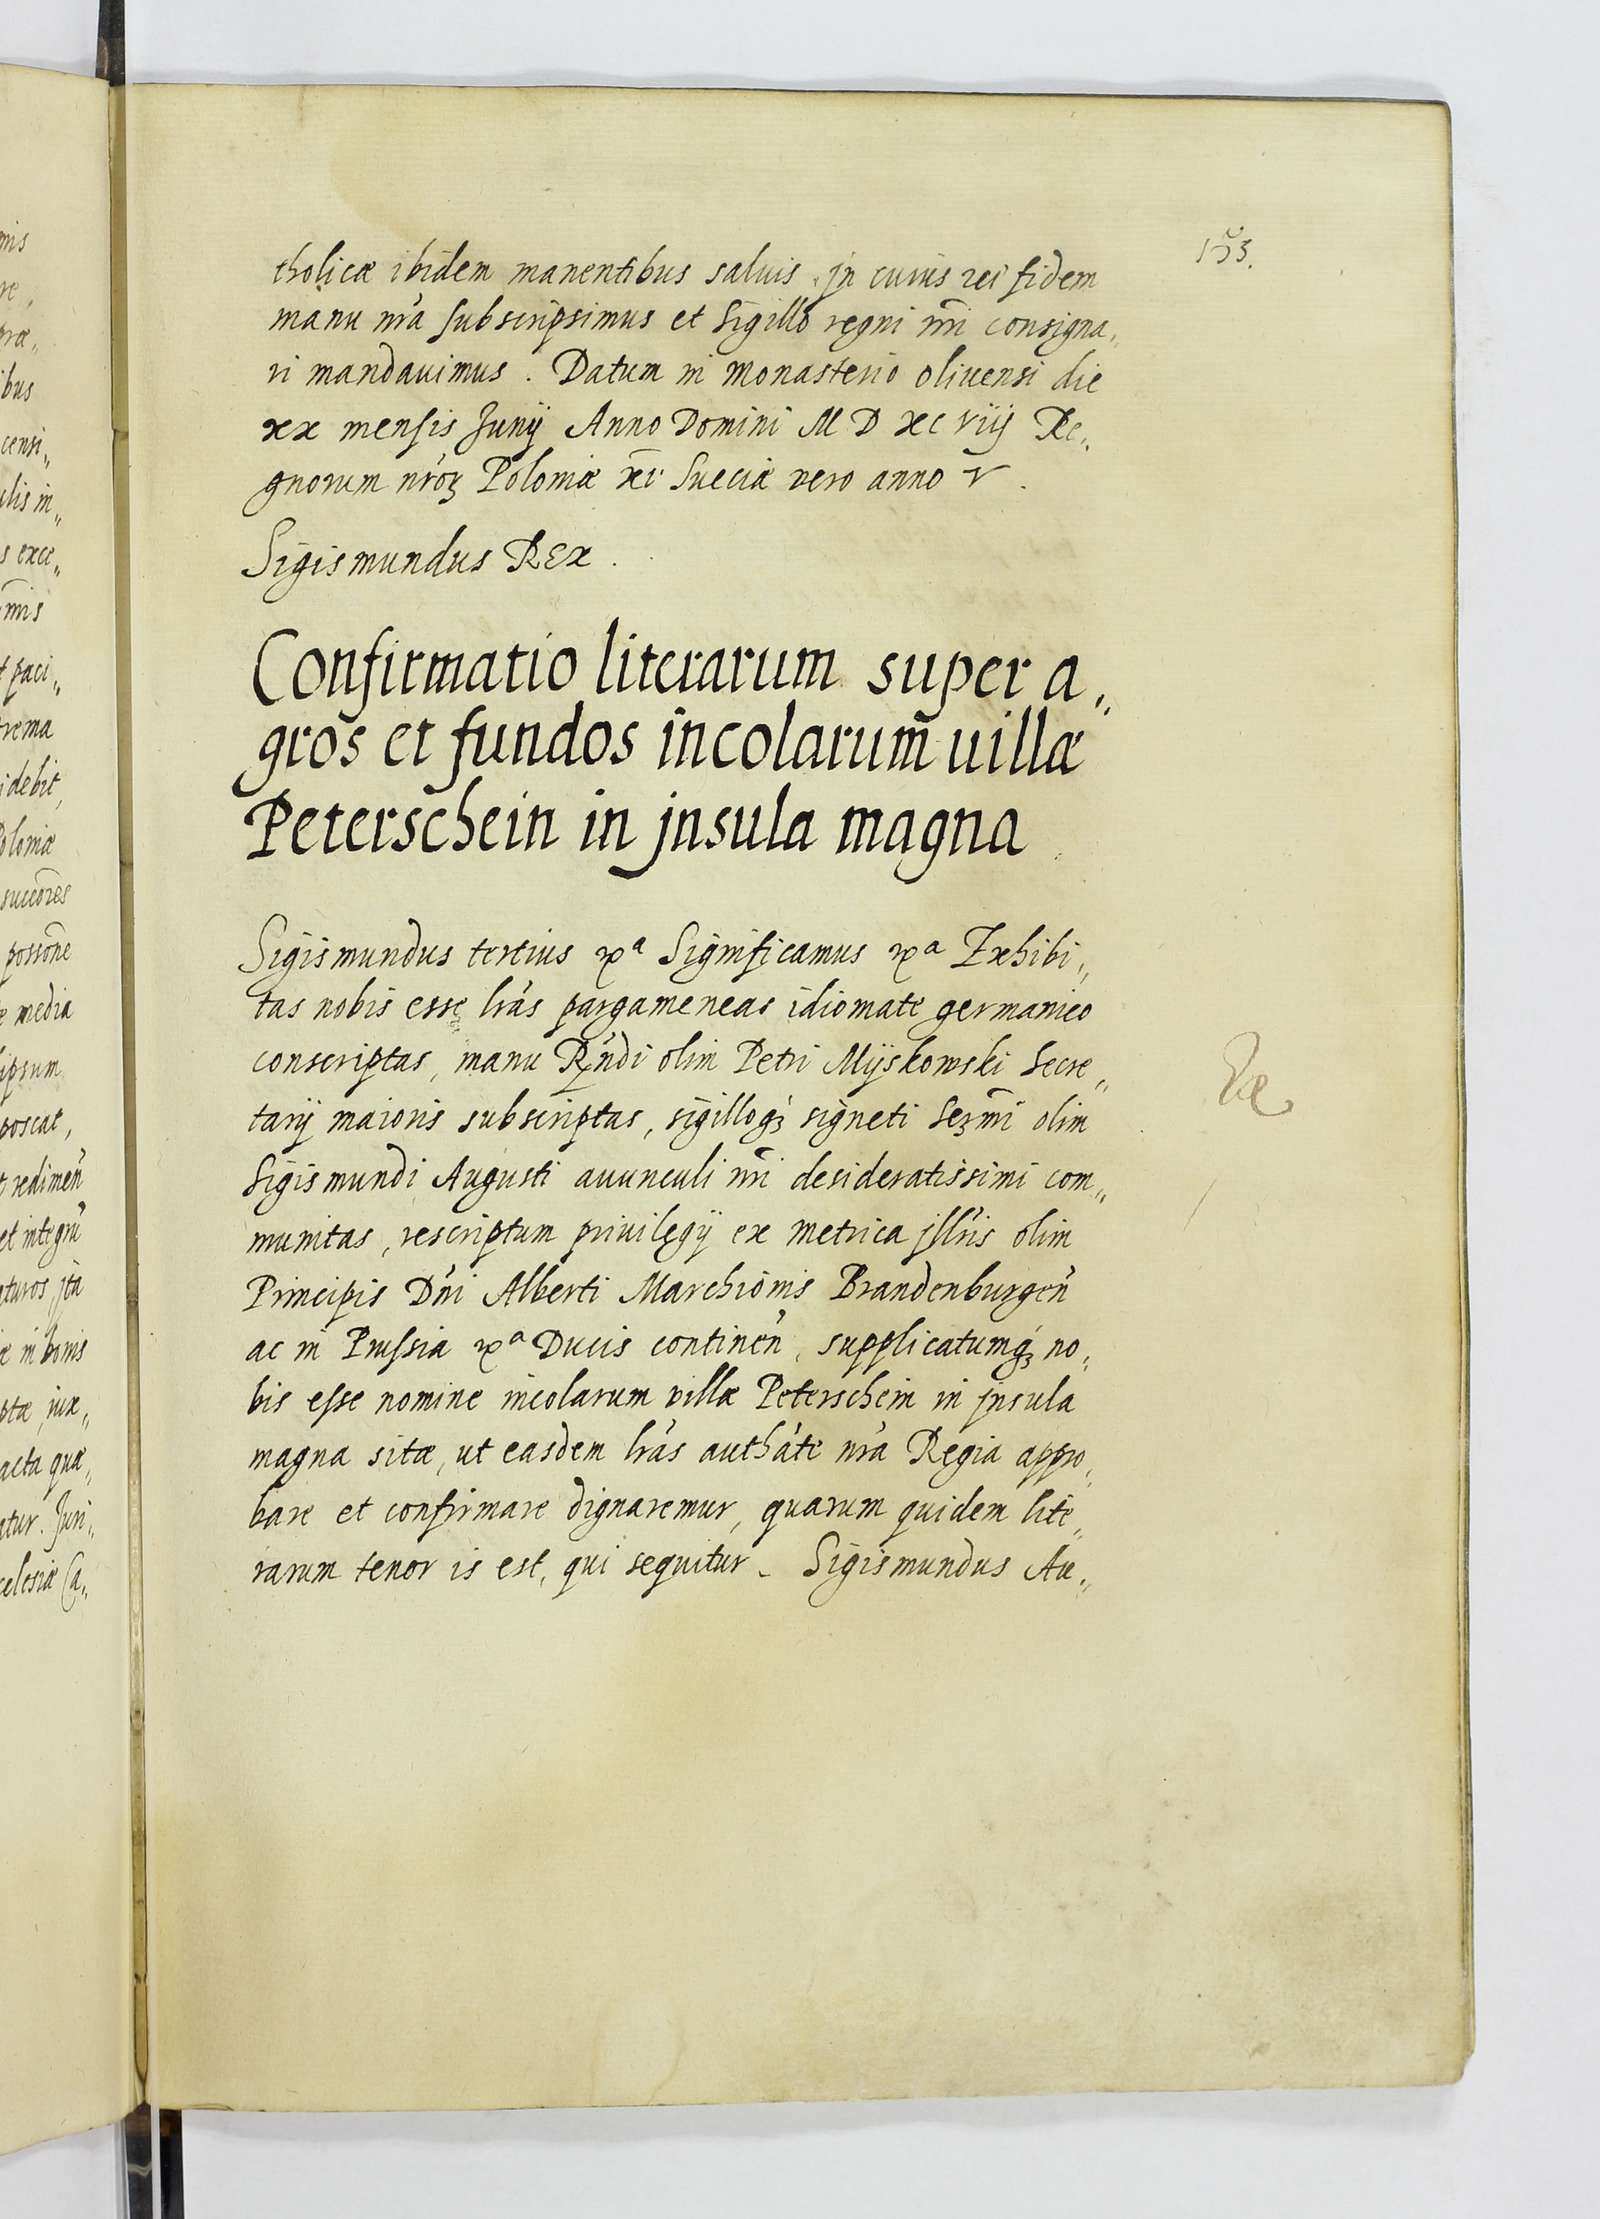 153.
tholicæ ibidem manentibus saluis. jn cuius rei fidem
manu nrã subscripsimus et Sigillo regni nri̅ consigna„
ri mandauimus. Datum in monasterio oliuensi die
xx mensis Junij Anno Domini M D xc viij Re„
gnorum nrõꝝ Poloniæ xi Sueciæ vero anno v.
Sigismundus REx.
Confirmatio literarum super a„
gros et fundos incolarum uillæ
Peterschein in jnsula magna
Sigismundus tertius ꝛcª Significamus ꝛcª Exhibi„
tas nobis esse lrãs pargameneas idiomate germanico
conscriptas, manu Rñdi olim Petri Mijskowski Secre„
tarij maioris subscriptas, sigilloqꝫ signeti Serm̅i olim
Sigismundi Augusti auunculi nri̅ desideratissimi com„
munitas, rescriptum priuilegij ex metrica jllris̃ olim
Principis Dñi Alberti Marchionis Brandenburgeñ
ac in Prussia ꝛcª Ducis contineñ, supplicatumqꝫ no„
bis esse nomine incolarum villæ Peterschein in jnsula
magna sitæ, ut easdem lrãs authãte nrã Regia appro„
bare et confirmare dignaremur, quarum quidem lite„
rarum tenor is est, qui sequitur. Sigismundus Au„
mis
re,
præ„
ibus
censi„
ulis in„
s exce„
paci„
trema
idebit,
Poloniæ
succõres
possõne
media
ipsum
poscat,
redimeñ
et integrũ
aturos, jta
in bonis
ptæ, jux„
acta quæ„
atur. Juri„
celesiæ Ca„